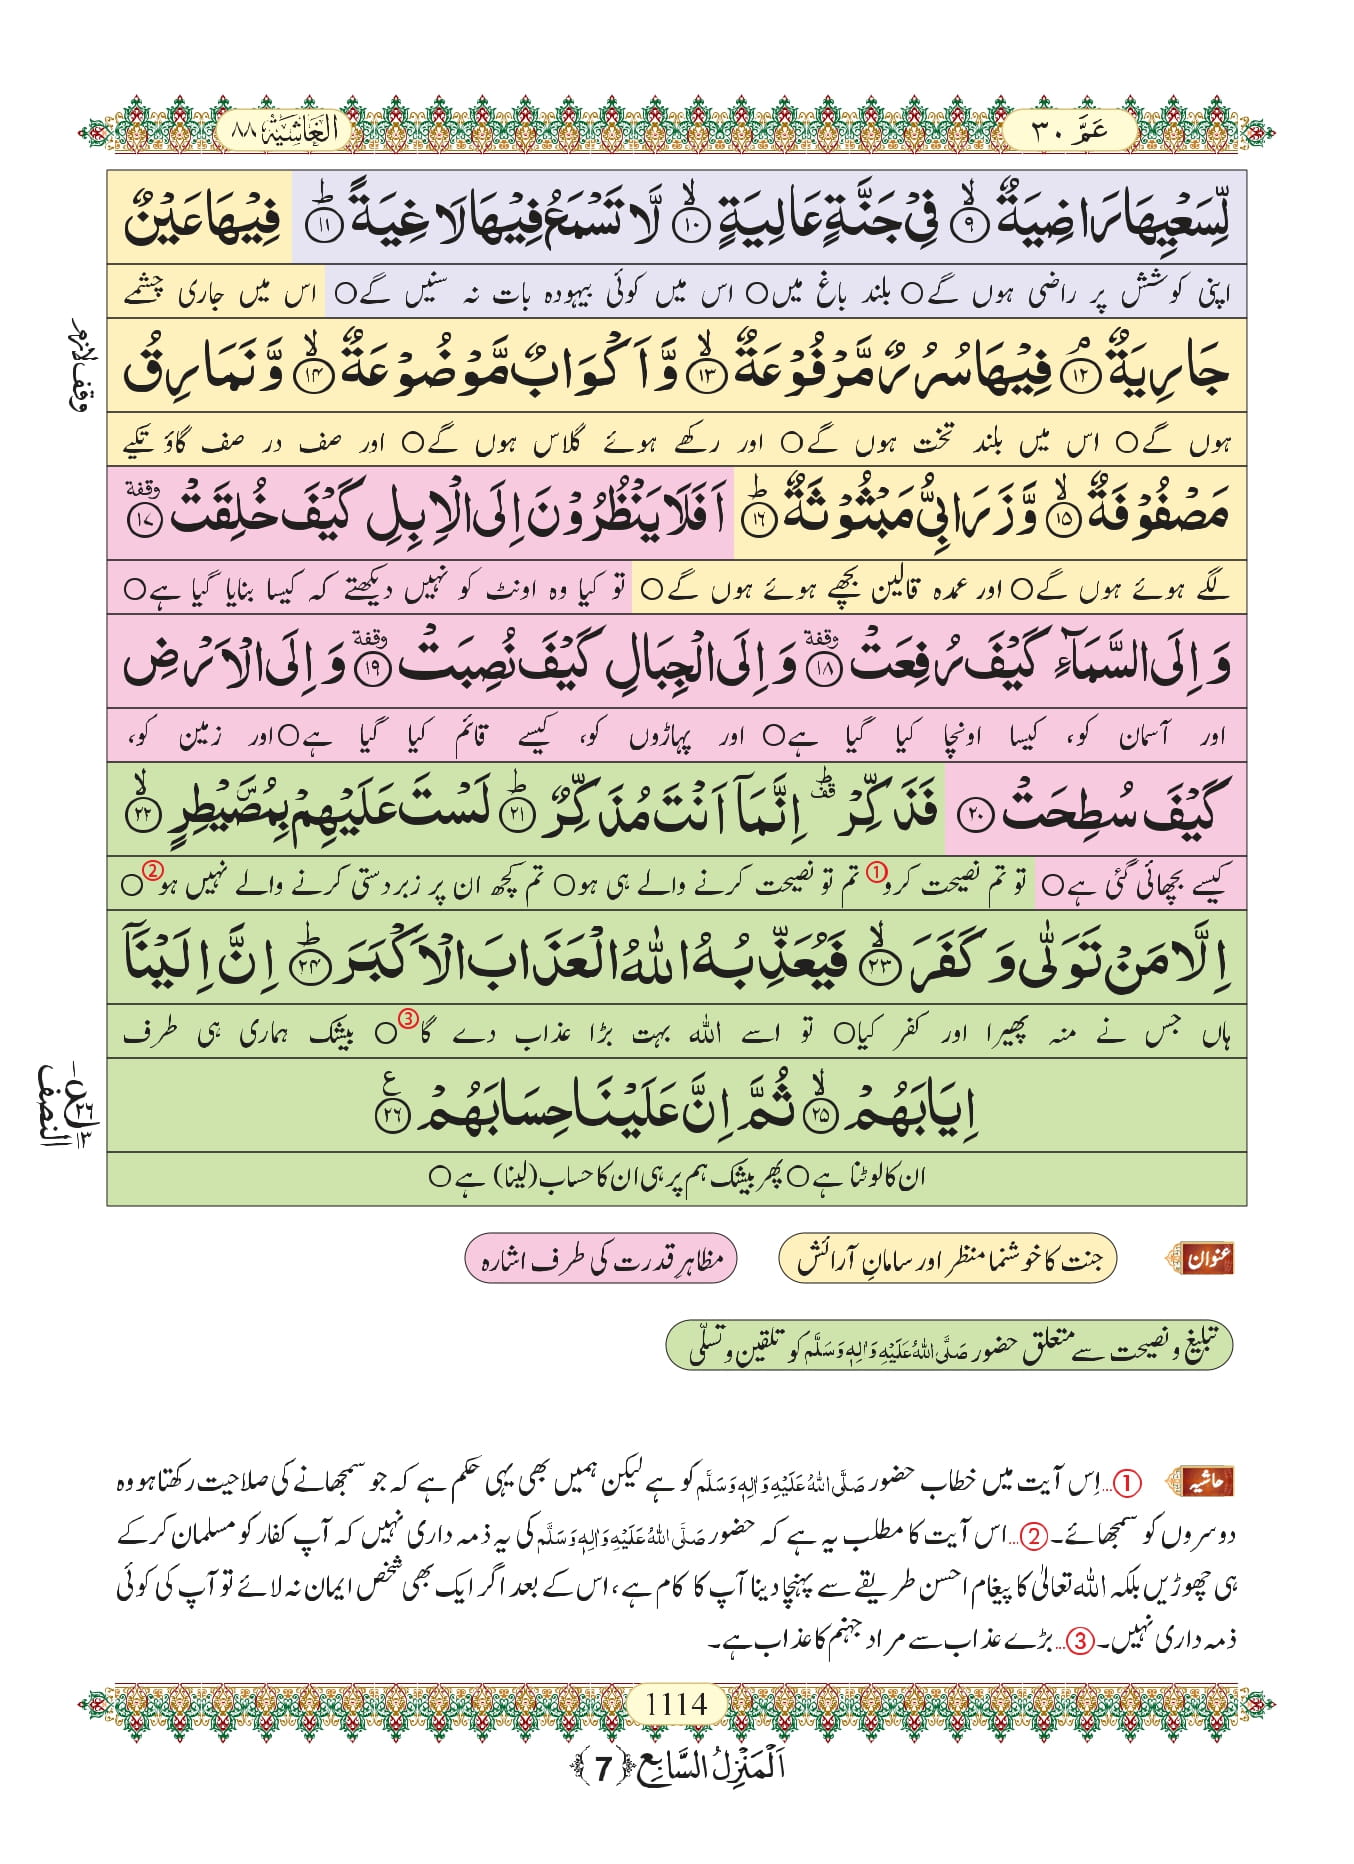 عَمَّ ۳۰
الغَاشِيَة ۸۸
لِّسَعْیِهَا رَاضِیَةٌۙ(۹) فِیْ جَنَّةٍ عَالِیَةٍۙ(۱۰) لَّا تَسْمَعُ فِیْهَا لَاغِیَةًؕ(۱۱) فِیْهَا عَیْنٌ
اپنی کوشش پر راضی ہوں گے○ بلند باغ میں○ اس میں کوئی بیہودہ بات نہ سنیں گے○ اس میں جاری چشمے
جَارِیَةٌۘ(۱۲) فِیْهَا سُرُرٌ مَّرْفُوْعَةٌۙ(۱۳) وَّ اَكْوَابٌ مَّوْضُوْعَةٌۙ(۱۴) وَّ نَمَارِقُ
وقف لازم
ہوں گے○ اس میں بلند تخت ہوں گے○ اور رکھے ہوئے گلاس ہوں گے○ اور صف در صف گاؤ تکیے
مَصْفُوْفَةٌۙ(۱۵) وَّ زَرَابِیُّ مَبْثُوْثَةٌؕ(۱۶) اَفَلَا یَنْظُرُوْنَ اِلَى الْاِبِلِ كَیْفَ خُلِقَتْ وقفة(۱۷)
لگے ہوئے ہوں گے○ اور عمدہ قالین بچھے ہوئے ہوں گے○ تو کیا وہ اونٹ کو نہیں دیکھتے کہ کیسا بنایا گیا ہے○
وَ اِلَى السَّمَآءِ كَیْفَ رُفِعَتْ وقفة(۱۸) وَ اِلَى الْجِبَالِ كَیْفَ نُصِبَتْ وقفة(۱۹) وَ اِلَى الْاَرْضِ
اور آسمان کو، کیسا اونچا کیا گیا ہے○ اور پہاڑوں کو، کیسے قائم کیا گیا ہے○ اور زمین کو،
كَیْفَ سُطِحَتْ(۲۰) فَذَكِّرْ۫ؕ اِنَّمَاۤ اَنْتَ مُذَكِّرٌؕ(۲۱) لَسْتَ عَلَیْهِمْ بِمُصَۜیْطِرٍۙ(۲۲)
کیسے بچھائی گئی ہے○ تو تم نصیحت کرو① تم تو نصیحت کرنے والے ہی ہو○ تم کچھ ان پر زبردستی کرنے والے نہیں ہو②○
اِلَّا مَنْ تَوَلّٰى وَ كَفَرَۙ(۲۳) فَیُعَذِّبُهُ اللّٰهُ الْعَذَابَ الْاَكْبَرَؕ(۲۴) اِنَّ اِلَیْنَاۤ
ہاں جس نے منہ پھیرا اور کفر کیا○ تو اسے اللہ بہت بڑا عذاب دے گا③○ بیشک ہماری ہی طرف
اِیَابَهُمْۙ(۲۵) ثُمَّ اِنَّ عَلَیْنَا حِسَابَهُمْ۠(۲۶)
النصف
ان کا لوٹنا ہے○ پھر بیشک ہم پر ہی ان کا حساب (لینا) ہے○
عنوان جنت کا خوشنما منظر اور سامانِ آرائش مظاہرِ قدرت کی طرف اشارہ
تبلیغ و نصیحت سے متعلق حضور صَلَّی اللہُ عَلَیْہِ وَاٰلِہٖ وَسَلَّم کو تلقین و تسلّی
حاشیہ ①...اِس آیت میں خطاب حضور صَلَّی اللہُ عَلَیْہِ وَاٰلِہٖ وَسَلَّم کو ہے لیکن ہمیں بھی یہی حکم ہے کہ جو سمجھانے کی صلاحیت رکھتا ہو وہ
دوسروں کو سمجھائے۔②...اس آیت کا مطلب یہ ہے کہ حضور صَلَّی اللہُ عَلَیْہِ وَاٰلِہٖ وَسَلَّم کی یہ ذمہ داری نہیں کہ آپ کفار کو مسلمان کر کے
ہی چھوڑیں بلکہ اللہ تعالیٰ کا پیغام احسن طریقے سے پہنچا دینا آپ کا کام ہے، اس کے بعد اگر ایک بھی شخص ایمان نہ لائے تو آپ کی کوئی
ذمہ داری نہیں۔③...بڑے عذاب سے مراد جہنم کا عذاب ہے۔
1114
اَلْمَنْزِلُ السَّابِع ﴿7﴾